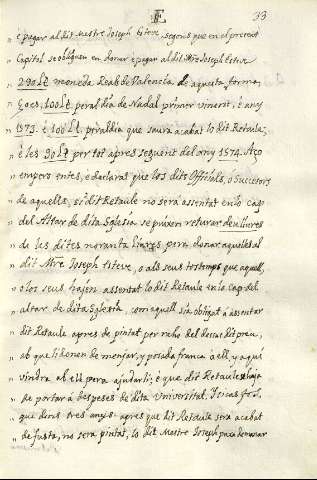 E
33
" è pagar al dit Mestre Joseph Esteve segons que en el present
" Capitol se obliguen en donar è pagar al dit Mre Joseph Esteve
" 290 Lt moneda Reals de Valencia de aquesta forma,
" ço es: 100 Lt peral dia de Nadal primer vinent, è any
" 1573. è 100 Lt, peraldia que haura acabat lo dit Retaule,
" è les 90 Lt per tot apres seguent del any 1574. Açò
" empero entes, e declarat que los dits Officials, ò Sucesors
" de aquells, si dit Retaule no serà assentat en lo cap
" del Altar de dita Sglesia se puixen returar deu lliures
" de les dites noranta lliures pera donar aquelles al
" dit Mre Joseph Esteve, o als seus tostemps que aquell,
" o los seus hajen assentat lo dit Retaule en lo cap del
" altar de dita Sglesia, com aquell sia obligat à assentar
" dit Retaule apres de pintat per raho del desus dit preu,
" ab que li donen de menjar, y posada franca à ell, y a qui
" vindra al ell pera ajudarli; è que dit Retaule se haja
" de portar à despeses de dita Universitat. Y si cas fos,
" que dins tres anys apres que dit Retaule serà acabat
" de fusta, no sera pintat, lo dit Mestre Joseph puixa demanar